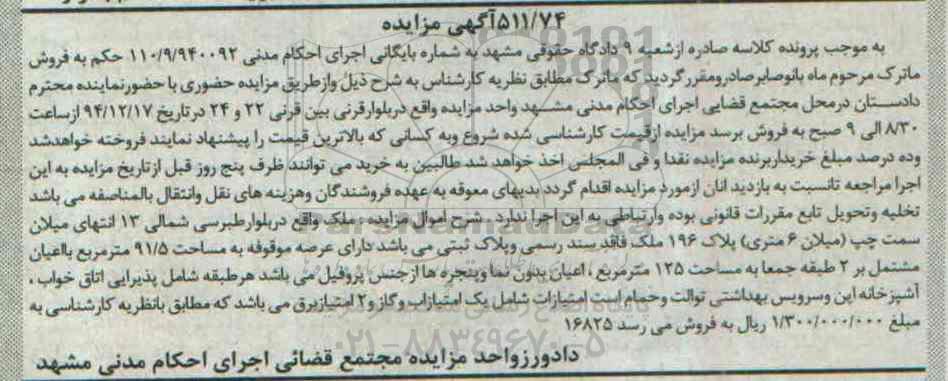 ۵۱۱/۷۴آگهی مزایده
به موجب پرونده کلاسه صادره ازشعبه ۹ دادگاه حقوقی مشهد به شماره بایگانی اجرای احکام مدنی ۱۱۰/۹/۹۴۰۰۹۲ حکم به فروش
ماترک مرحوم ماه بانوصابرصادرومقررگردید که ماترک مطابق نظریه کارشناس به شرح ذیل وازطریق مزایده حضوری با حضورنماینده محترم
دادستان درمحل مجتمع قضایی اجرای احکام مدنی مشهد واحد مزایده واقع دربلوارقرنی بین قرنی ۲۲ و ۲۴ درتاریخ ۹۴/۱۲/۱۷ ازساعت
۸/۳۰ الی ۹ صبح به فروش برسد مزایده ازقیمت کارشناسی شده شروع وبه کسانی که بالاترین قیمت را پیشنهاد نمایند فروخته خواهدشد
وده درصد مبلغ خریدازبرنده مزایده نقدا و فی المجلس اخذ خواهد شد طالبین به خرید می توانند ظرف پنج روز قبل ازتاریخ مزایده به این
اجرا مراجعه تانسبت به بازدید انان ازمورد مزایده اقدام گردد بدیهای معوقه به عهده فروشندگان وهزینه های نقل وانتقال بالمناصفه می باشد
تخلیه وتحویل تابع مقررات قانونی بوده وارتباطی به این اجرا ندارد . شرح اموال مزایده : ملک واقع دربلوارطبرسی شمالی ۱۳ انتهای میلان
سمت چپ (میلان ۶ متری) پلاک ۱۹۶ ملک فاقد سند رسمی وپلاک ثبتی می باشد دارای عرصه موقوفه به مساحت ۹۱/۵ مترمربع بااعیان
مشتمل بر ۲ طبقه جمعا به مساحت ۱۲۵ مترمربع ، اعیان بدون نما وپنجره ها ازجنس پروفیل می باشد هرطبقه شامل پذیرایی اتاق خواب ،
آشپزخانه اپن وسرویس بهداشتی توالت وحمام است امتیازات شامل یک امتیازاب وگاز و۲ امتیازبرق می باشد که مطابق بانظریه کارشناسی به
مبلغ ۱/۳۰۰/۰۰۰/۰۰۰ ریال به فروش می رسد ۱۶۸۲۵
۰۲۱-۸۸۳۴۹۶۷۰-۵
دادورزواحد مزایده مجتمع قضائی اجرای احکام مدنی مشهد